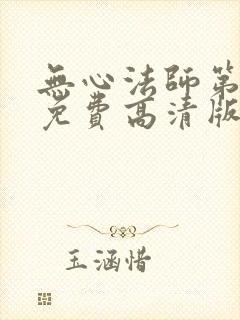 無心法師第
免費高清版
玉涵惜